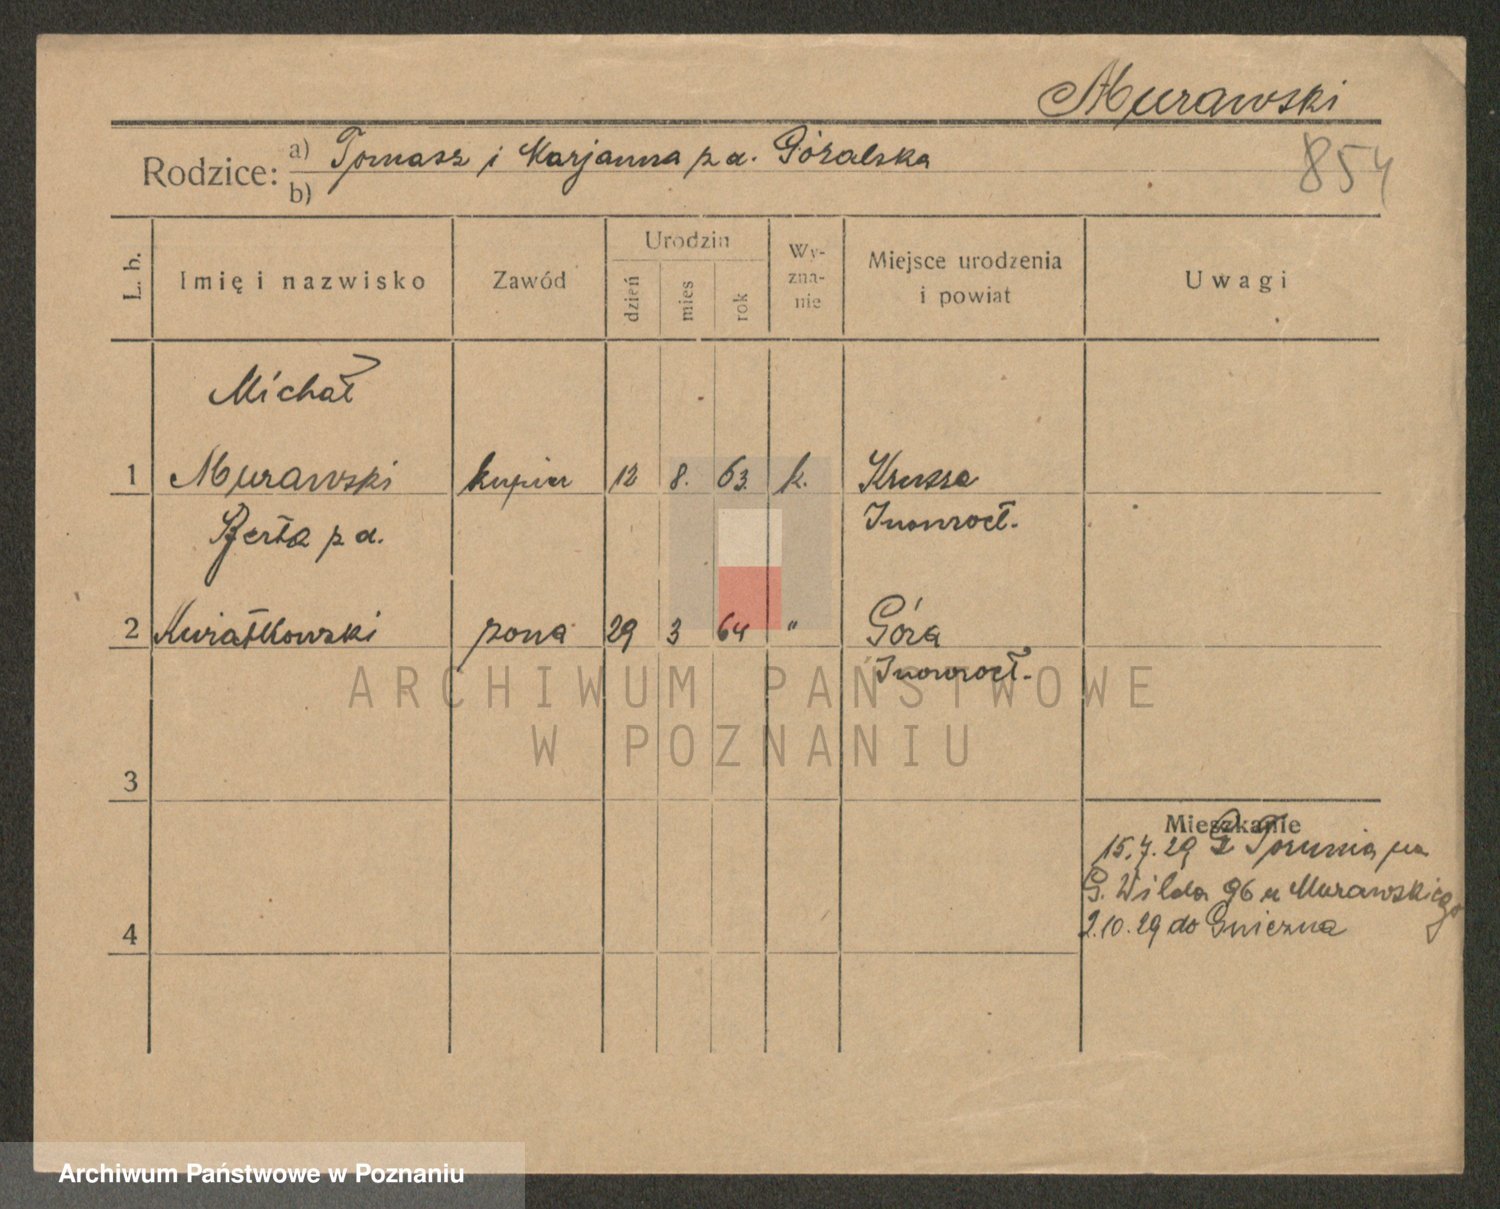 Murawski
854
Rodzice: a) Tomasz i Marjanna z d. Góralska
b)
L. b.
Imię i nazwisko
Zawód
Urodzin
dzień
mies
rok
Wy-
zna-
nie
Miejsce urodzenia
i powiat
Uwagi
Michał
1 Murawski kupiec 12 8. 63. k. Krusza
Inowrocł.
Berta z d.
2 Kwiatkowski żona 29 3 64 " Góra
Inowrocł.
3
Mieszkanie
15.7.29 Z Torunia na
G. Wilda 96 u Murawskiego
2.10.29 do Gniezna
4
ARCHIWUM PAŃSTWOWE
W POZNANIU
Archiwum Państwowe w Poznaniu